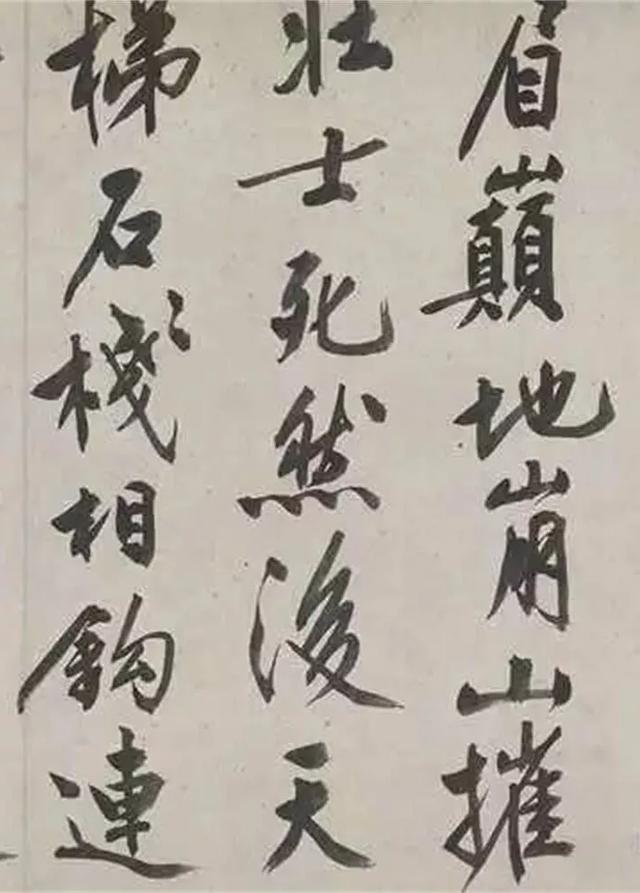 眉巔地崩山摧
壯士死然後天
梯石棧相鈎連